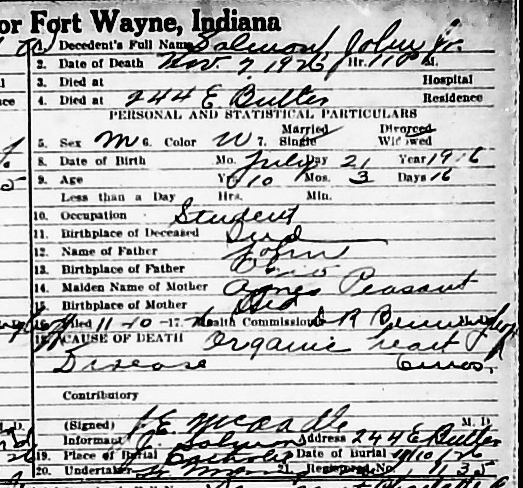 or Fort Wayne, Indiana
1. Decedent's Full Name Salmon, John Jr.
2. Date of Death Nov. 7, 1926 Hr. 11 P M.
3. Died at Hospital
4. Died at 244 E. Butler Residence
PERSONAL AND STATISTICAL PARTICULARS
5. Sex M 6. Color W 7. Married Single Divorced Widowed
8. Date of Birth Mo. July Day 21 Year 1916
9. Age Yrs. 10 Mos. 3 Days 16
Less than a Day Hrs. Min.
10. Occupation Student
11. Birthplace of Deceased Ind
12. Name of Father John
13. Birthplace of Father
14. Maiden Name of Mother Agnes Peasant
15. Birthplace of Mother Ind
16. Filed 11-10- 17. Health Commissioner
18. CAUSE OF DEATH Organic heart
Disease
Contributory
(Signed) J.E. McArdle M. D.
Informant J. Salmon Address 244 E Butler
19. Place of Burial Catholic Date of Burial 11/10/26
20. Undertaker 21. Registered No. 1135